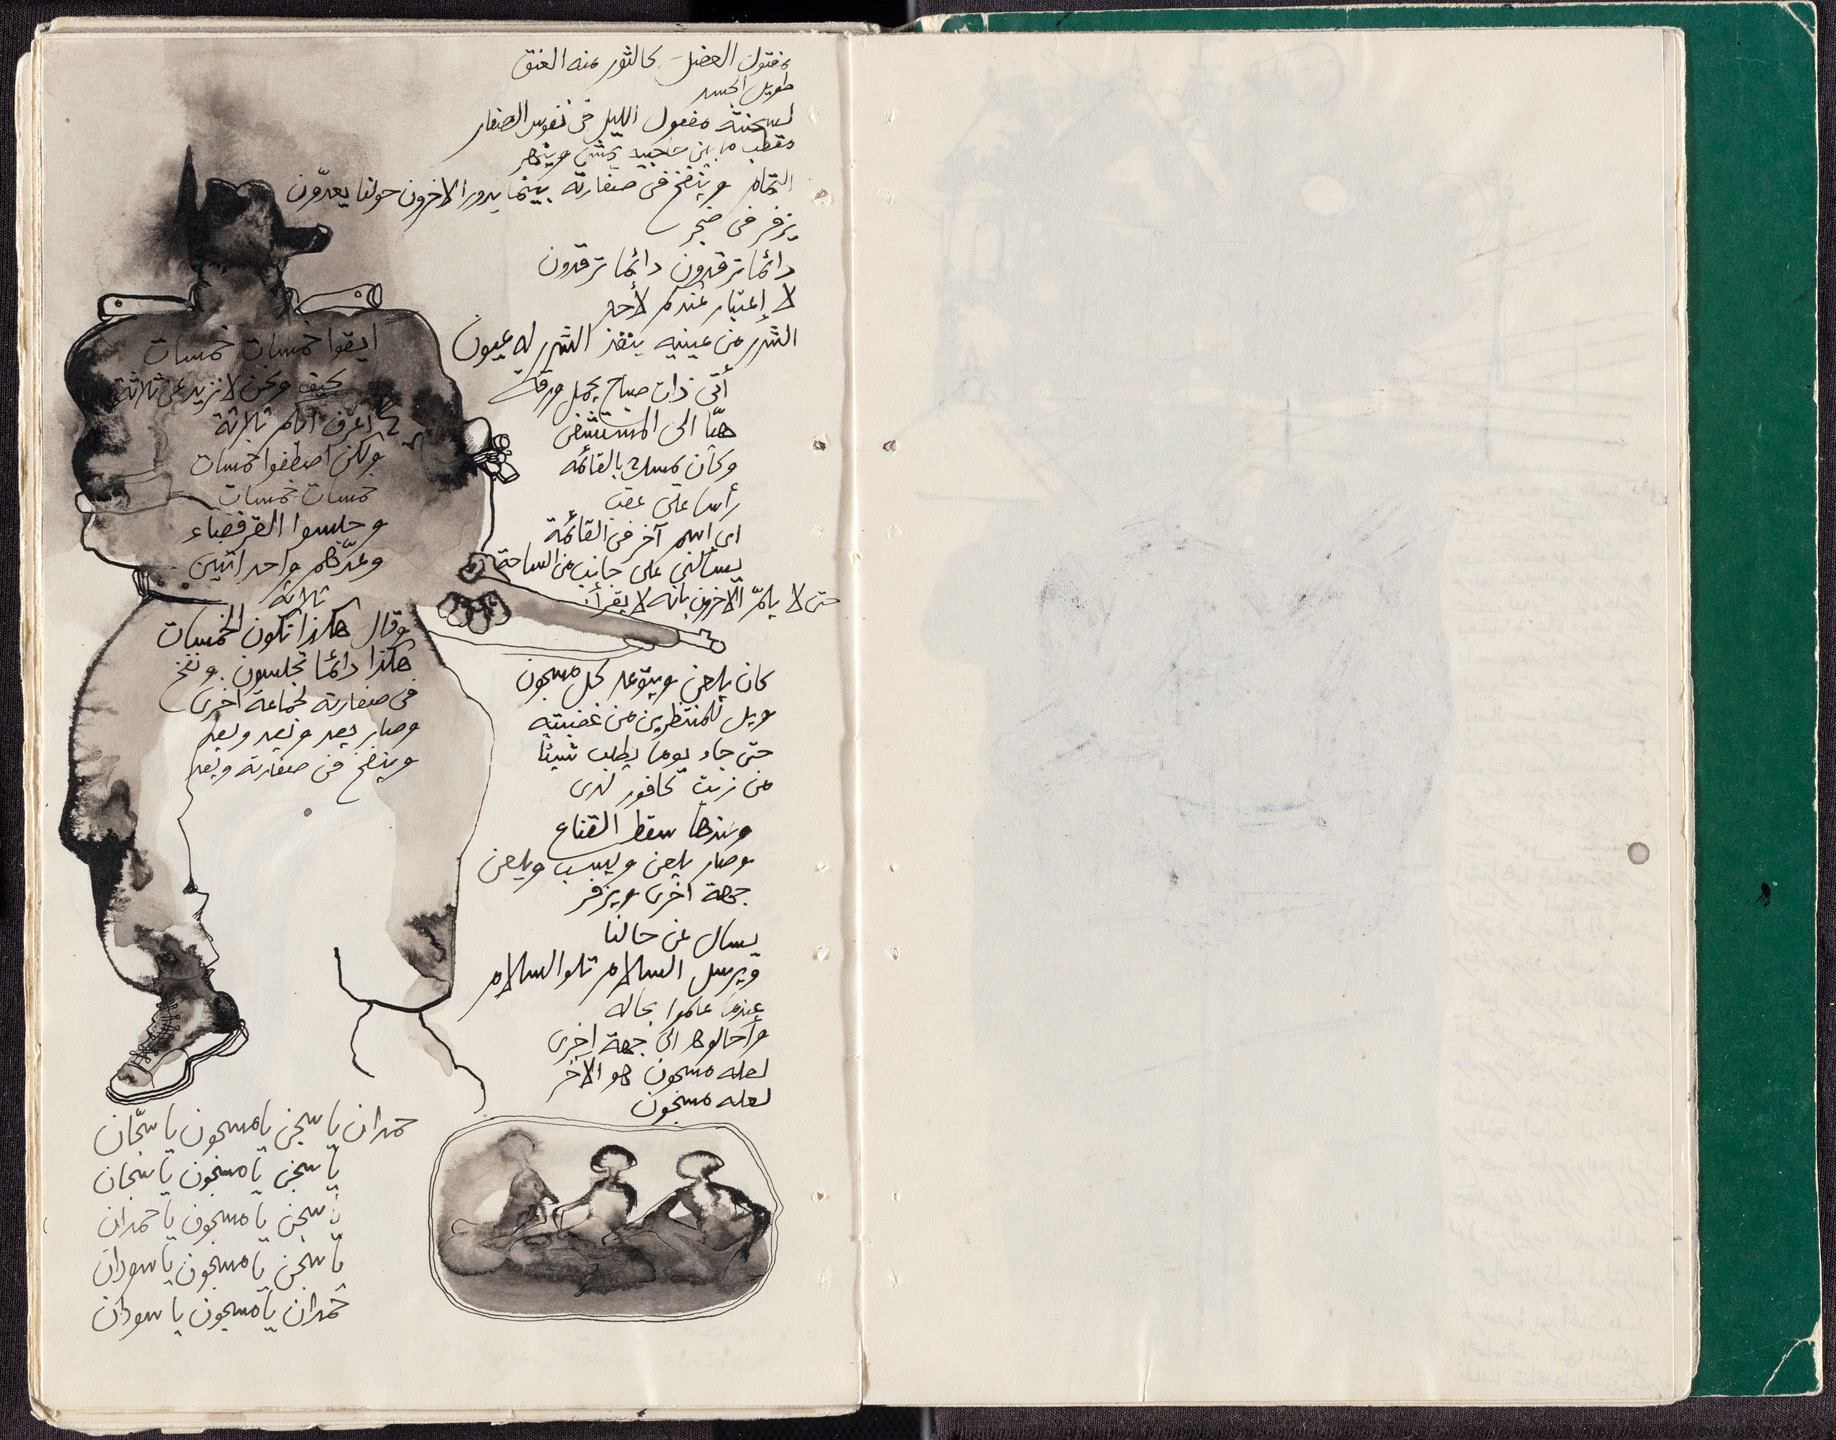 مفتول العضل كالثور منه العنق
طويل الجسد
لسحنته مفعول الليل في نفوس الصغار
مقطب ما بين حاجبيه يمشي وينهر
وينفخ في صفارته بينما يدور الآخرون حولنا يعدّون
يزفر في ضجر
دائما ترقدون دائما ترقدون
لا إعتبار عندكم لأحد
الشرر من عينيه ينفذ الشرر له عيون
أتى ذات صباح يحمل ورقة
هيّا الى المستشفى
وكان يمسك بالقائمه
رأسا على عقب
اي اسم آخر في القائمة
يسألني على جانب من الساحة
حتى لا يلمّ الآخرون بأنه لا يقرأ
كان يلعن ويتوعد كل مسجون
ويل للمنتظرين من غضبته
حتى جاء يوما يطلب شيئا
من زيت كافور لدى
وعندها سقط القناع
وصار يلعن ويسب ويلعن
جهة أخرى ويزفر
يسال عن حالنا
ويرسل السلام تلو السلام
عندما علموا بحاله
وأحالوه الى جهة اخرى
لعله مسجون هو الآخر
لعله مسجون
ايقوا خمسات خمسات
كيف ونحن لا نزيد عن ثلاثة
اعرف انكم ثلاثة
ولكن اصطفوا خمسات
خمسات خمسات
وجلسوا القرفصاء
وعدّهم واحد اثنين
ثلاثة
وقال هكذا تكون الخمسات
هكذا دائما تجلسون. ونفخ
في صفارته لجماعة اخرى
وصار يعد ويعد ويعد
وينفخ في صفارته ويعد
حمدان يا سجن يا مسجون يا سجّان
يا سجن يا مسجون يا سجان
يا سجن يا مسجون يا حمدان
يا سجن يا مسجون يا سودان
حمدان يا مسجون يا سودان